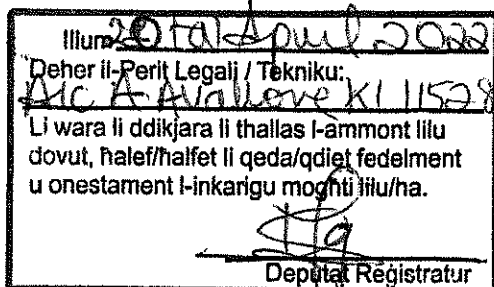 Illum 20 tal April 2022
Deher il-Perit Legali / Tekniku:
AIC A Avallone KI 11528
Li wara li ddikjara li thallas l-ammont lilu
dovut, ħalef/ħalfet li qeda/qdiet fedelment
u onestament l-inkarigu mogħti lilu/ha.
Deputat Reġistratur